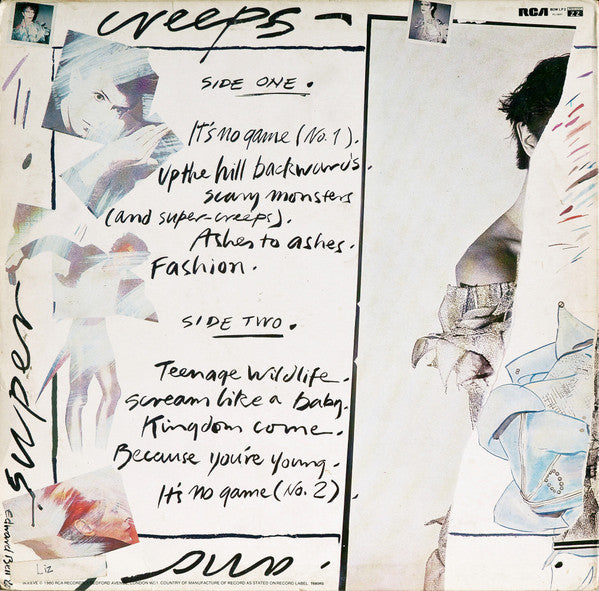 creeps -
RCA BOW LP 2
SIDE ONE.
It's no game (No. 1).
Up the hill backwards.
scary monsters
(and super-creeps).
Ashes to ashes.
Fashion.
SIDE TWO.
Teenage Wildlife.
scream like a baby.
Kingdom come.
Because you're young.
It's no game (No. 2).
super
Edward Bell
Liz
and
© 1980 RCA RECORDS, BEDFORD AVENUE, LONDON WC1. COUNTRY OF MANUFACTURE OF RECORD AS STATED ON RECORD LABEL.